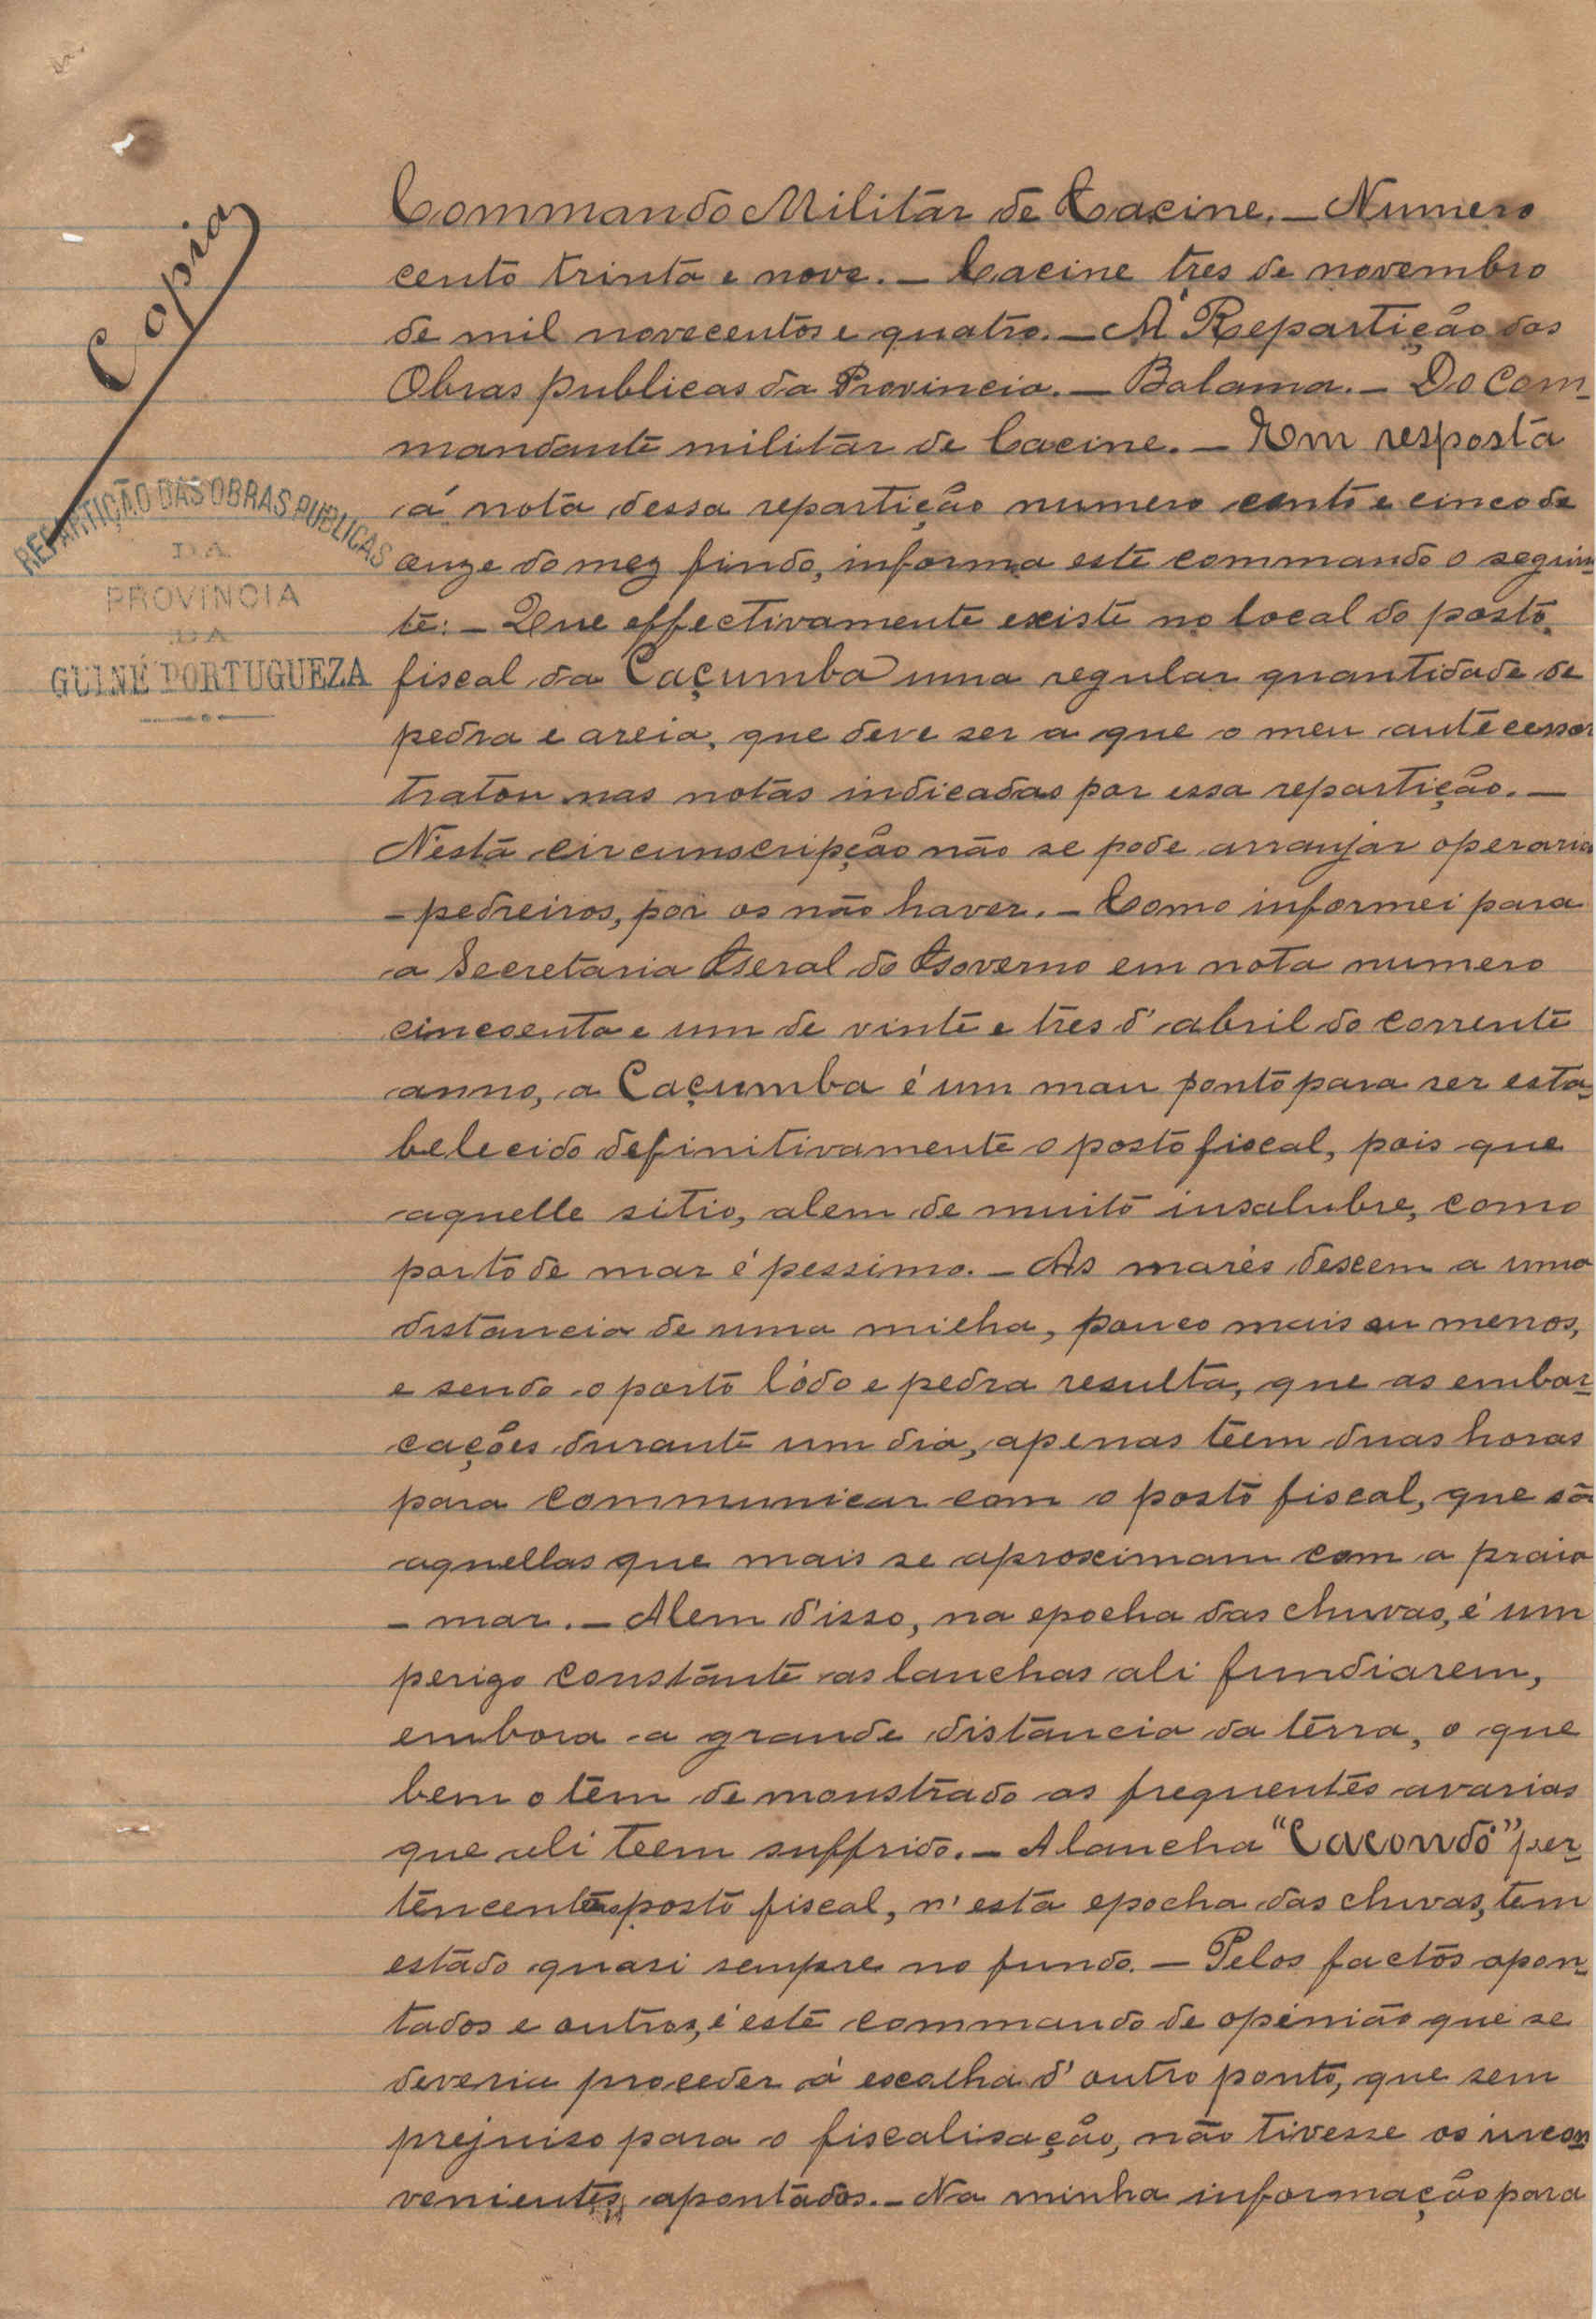 Copia
REPARTIÇÃO DAS OBRAS PUBLICAS
DA
PROVINCIA
DA
GUINÉ PORTUGUEZA
Commando Militar de Cacine. — Numero
cento trinta e nove. — Cacine tres de novembro
de mil novecentos e quatro. — Á Repartição das
Obras publicas da Provincia. — Bolama. — Do Com-
mandante militar de Cacine. — Em resposta
á nota dessa repartição numero cento e cinco de
onze do mez findo, informa este commando o seguin-
te: — Que effectivamente existe no local do posto
fiscal da Caçumba uma regular quantidade de
pedra e areia, que deve ser a que o meu antecessor
tratou nas notas indicadas por essa repartição. —
N'esta circumscripção não se pode arranjar operarios
- pedreiros, por os não haver. — Como informei para
a Secretaria Geral do Governo em nota numero
cincoenta e um de vinte e tres d'abril do corrente
anno, a Caçumba é um mau ponto para ser esta-
belecido definitivamente o posto fiscal, pois que
aquelle sitio, alem de muito insalubre, como
porto de mar é pessimo. — As marés descem a uma
distancia de uma milha, pouco mais ou menos,
e sendo o porto lôdo e pedra resulta, que as embar-
cações durante um dia, apenas têem duas horas
para communicar com o posto fiscal, que são
aquellas que mais se aproximam com a praia
- mar. — Alem d'isso, na epocha das chuvas, é um
perigo constante as lanchas ali fundiarem,
embora a grande distancia da terra, o que
bem o têm demonstrado as frequentes avarias
que ali teem suffrido. — A lancha "Cacondó" per-
tencente ao posto fiscal, n'esta epocha das chuvas, tem
estado quasi sempre no fundo. — Pelos factos apon-
tados e outros, é este commando de opinião que se
deveria proceder á escolha d'outro ponto, que sem
prejuiso para o fiscalisação, não tivesse os incon-
venientes apontados. — Na minha informação para